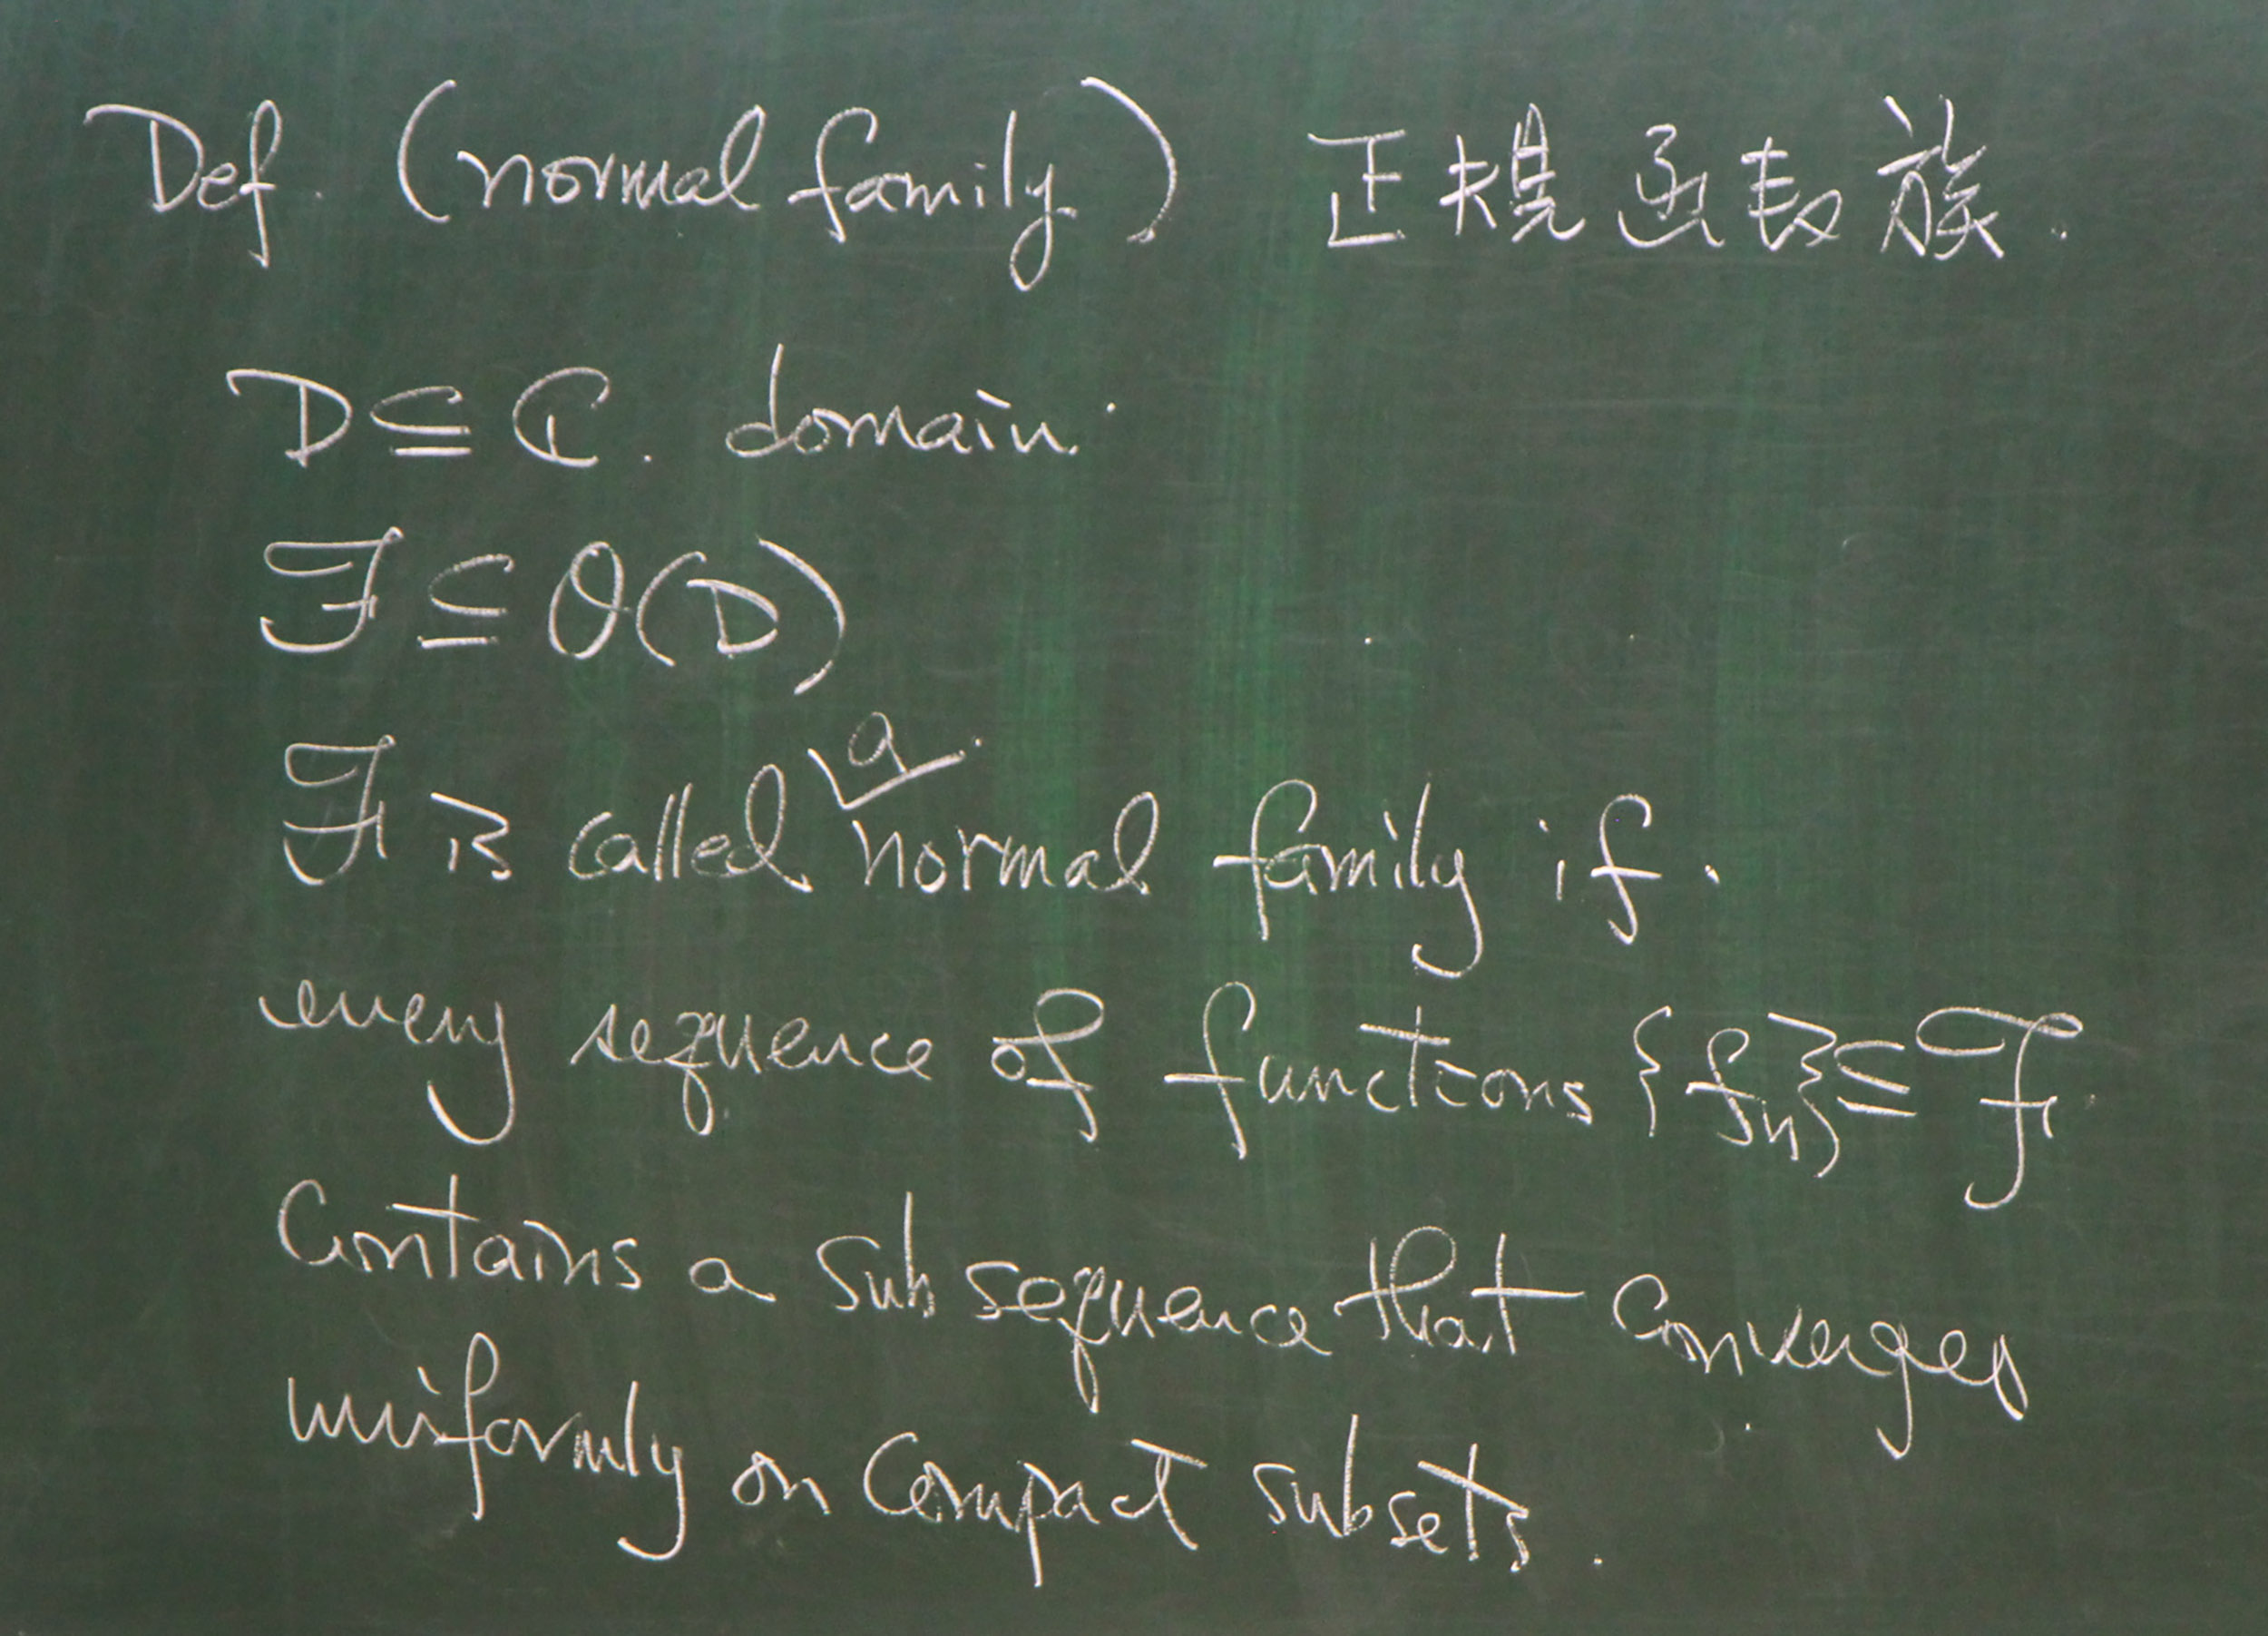 Def. (normal family) 正規函数族.
D ⊆ ℂ. domain.
ℱ ⊆ 𝒪(D)
ℱ is called a normal family if.
every sequence of functions {fₙ} ⊆ ℱ.
Contains a subsequence that converges
uniformly on compact subsets.